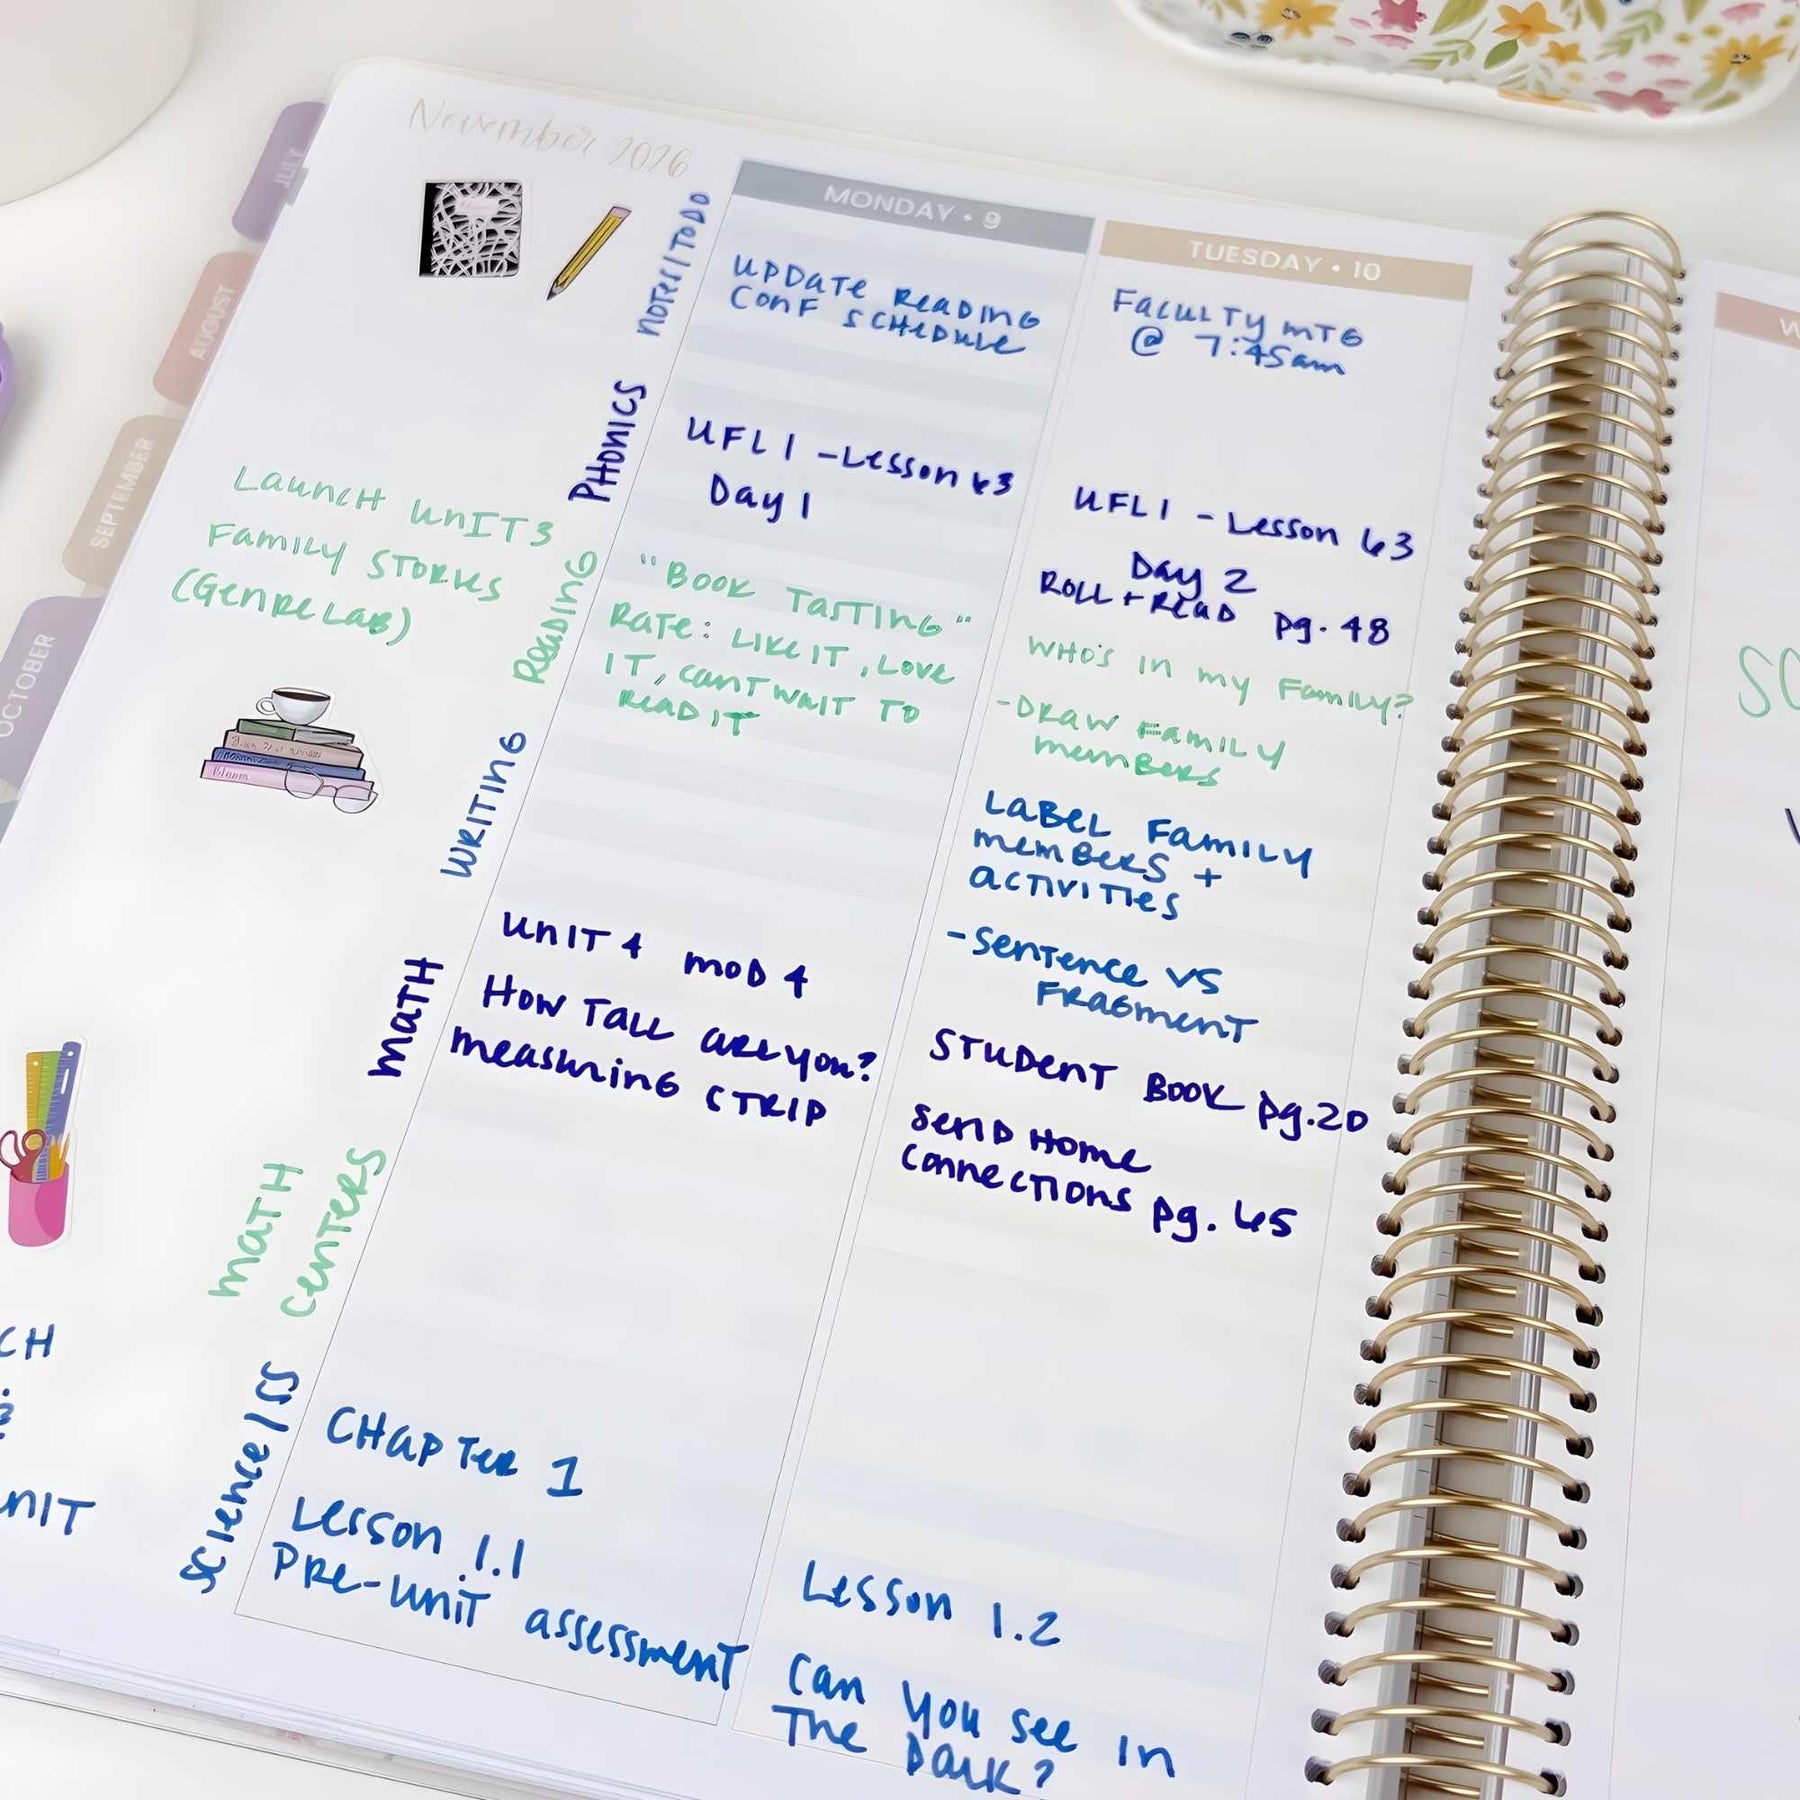 November 2026
JULY
AUGUST
SEPTEMBER
OCTOBER
LAUNCH UNIT 3
FAMILY STORIES
(GENRE LAB)
Bloom
CH
UNIT
NOTES/TODO
PHONICS
READING
WRITING
MATH
MATH
CENTERS
SCIENCE/SS
MONDAY • 9
UPDATE READING
CONF SCHEDULE
UFLI - LESSON 63
Day 1
"BOOK TASTING"
RATE: LIKE IT, LOVE
IT, CANT WAIT TO
READ IT
UNIT 4 MOD 4
HOW TALL ARE YOU?
MEASURING STRIP
CHAPTER 1
LESSON 1.1
PRE-UNIT ASSESSMENT
TUESDAY • 10
FACULTY MTG
@ 7:45am
UFLI - LESSON 63
Day 2
ROLL + READ pg. 48
WHO'S IN MY FAMILY?
- DRAW FAMILY
MEMBERS
LABEL FAMILY
MEMBERS +
ACTIVITIES
- SENTENCE VS
FRAGMENT
STUDENT BOOK pg. 20
SEND HOME
CONNECTIONS pg. 65
LESSON 1.2
CAN YOU SEE IN
THE DARK?
W
SC